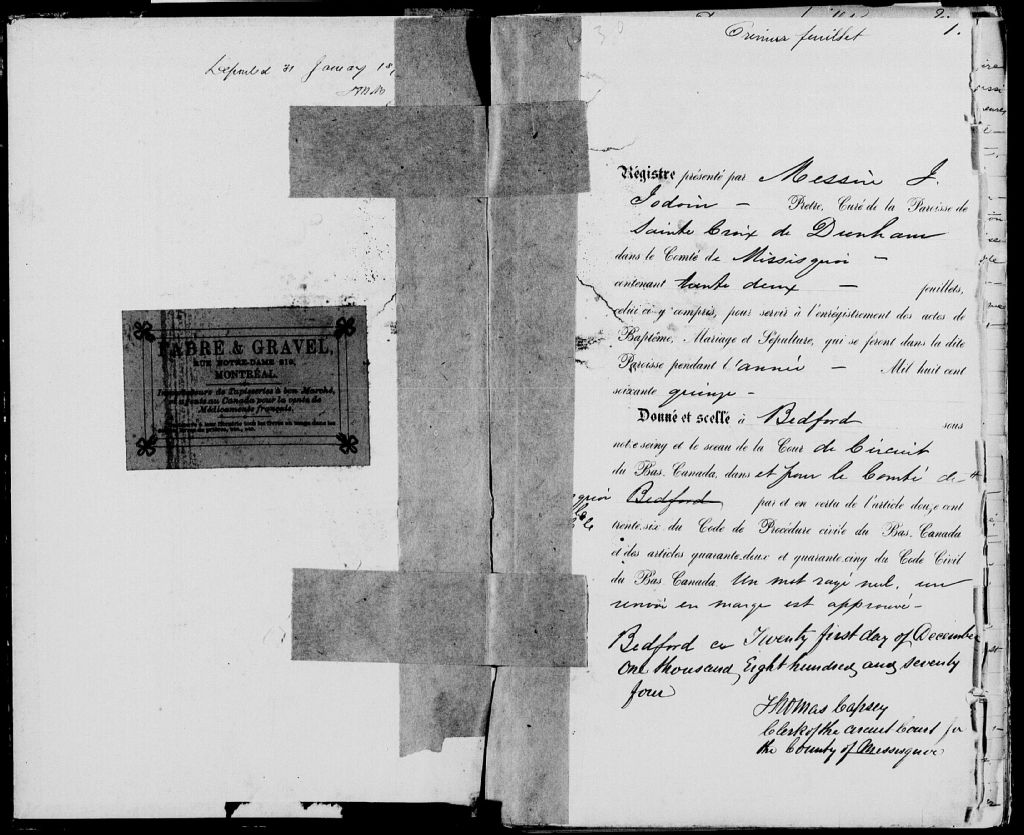 Deposited 31 January 18
Premier feuillet
1.
2.
FABRE & GRAVEL,
RUE NOTRE-DAME 219,
MONTRÉAL.
Importateurs de Tapisseries à bon Marché,
et agents au Canada pour la vente de
Médicaments français.
Régistre présenté par Messire J.
Jodoin — Prêtre, Curé de la Paroisse de
Sainte Croix de Dunham
dans le Comté de Missisquoi —
contenant trente deux — feuillets,
celui ci y compris, pour servir à l'enrégistrement des actes de
Baptême, Mariage et Sépulture, qui se feront dans la dite
Paroisse pendant l'année — Mil huit cent
soixante quinze —
Donné et scellé à Bedford sous
notre seing et le sceau de la Cour de Circuit
du Bas-Canada, dans et pour le Comté de
Bedford par et en vertu de l'article douze cent
trente-six du Code de Procédure civile du Bas-Canada
et des articles quarante-deux et quarante-cinq du Code Civil
du Bas Canada. Un mot rayé nul, un
renvoi en marge est approuvé —
Bedford Twenty first day of December
One thousand Eight hundred and seventy
four
Thomas Capsey
Clerk of the circuit Court for
the County of Missisquoi